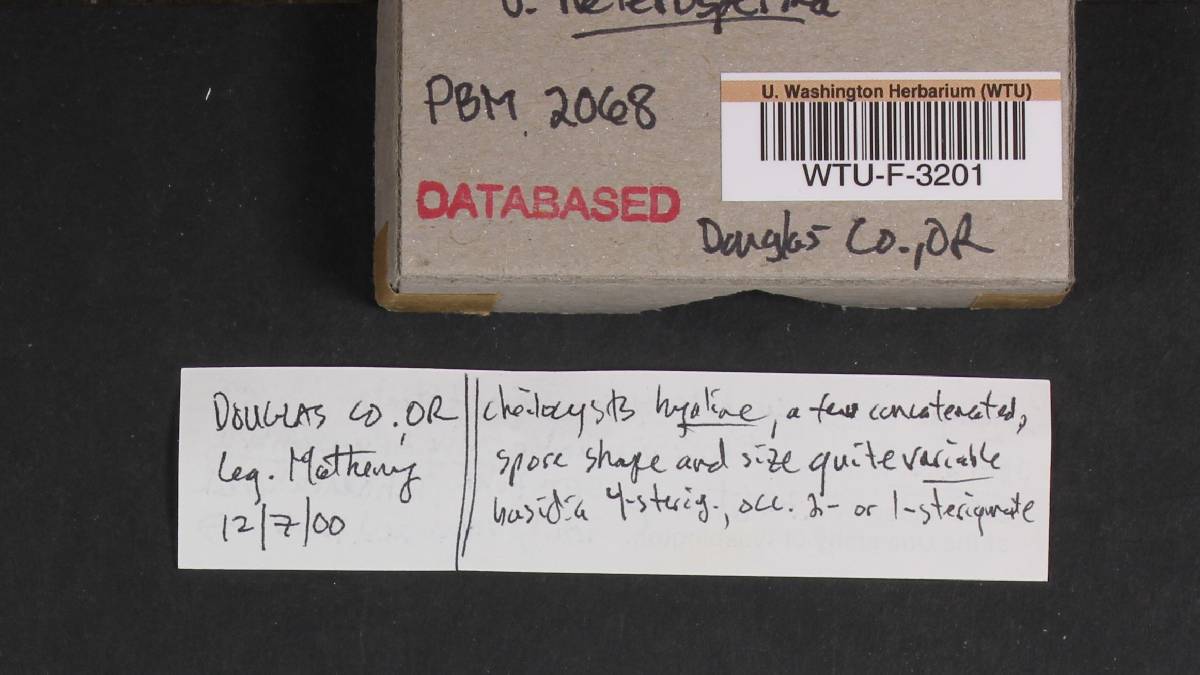 v. heterosperma
PBM 2068
U. Washington Herbarium (WTU)
WTU-F-3201
DATABASED
Douglas Co., OR
DOUGLAS CO., OR
Leg. Matheny
12/7/00
cheilocysts hyaline, a few concatenated,
spore shape and size quite variable
basidia 4-sterig., occ. 2- or 1-sterigmate